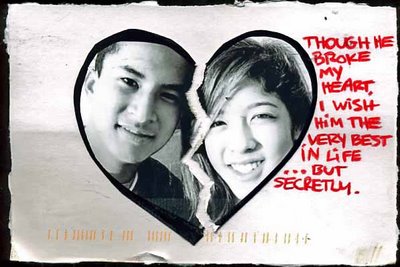 THOUGH HE
BROKE
MY
HEART,
I WISH
HIM THE
VERY BEST
IN LIFE
...BUT
SECRETLY.